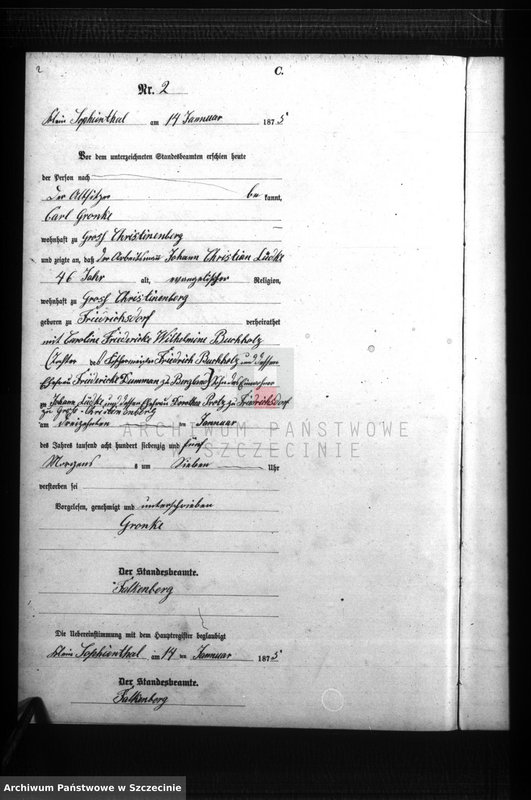 2
C.
Nr. 2
Klein Sophienthal am 14 Januar 1875
Vor dem unterzeichneten Standesbeamten erschien heute
der Person nach
Der Altsitzer be kannt,
Carl Gronke
wohnhaft zu Gross Christinenberg
und zeigte an, daß der Arbeitsmann Johann Christian Lüdke
46 Jahr alt, evangelischer Religion,
wohnhaft zu Gross Christinenberg
geboren zu Friedrichsdorf verheirathet
mit Caroline Friedericke Wilhelmine Buchholz
Tochter des Friedrich Buchholz und dessen
Ehefrau Friedericke Damman zu Sohn des Einwohner
Johann Lüdke und dessen Ehefrau Dorothea zu Friedrichsdorf
zu Gross-Christinenberg
am dreizehnten Januar
des Jahres tausend acht hundert siebenzig und fünf
Morgens s um Sieben Uhr
verstorben sei
Vorgelesen, genehmigt und unterschrieben
Gronke
Der Standesbeamte.
Falkenberg
Die Uebereinstimmung mit dem Hauptregister beglaubigt
Klein Sophienthal am 14 ten Januar 1875
Der Standesbeamte.
Falkenberg
ARCHIWUM PAŃSTWOWE
W SZCZECINIE
Archiwum Państwowe w Szczecinie